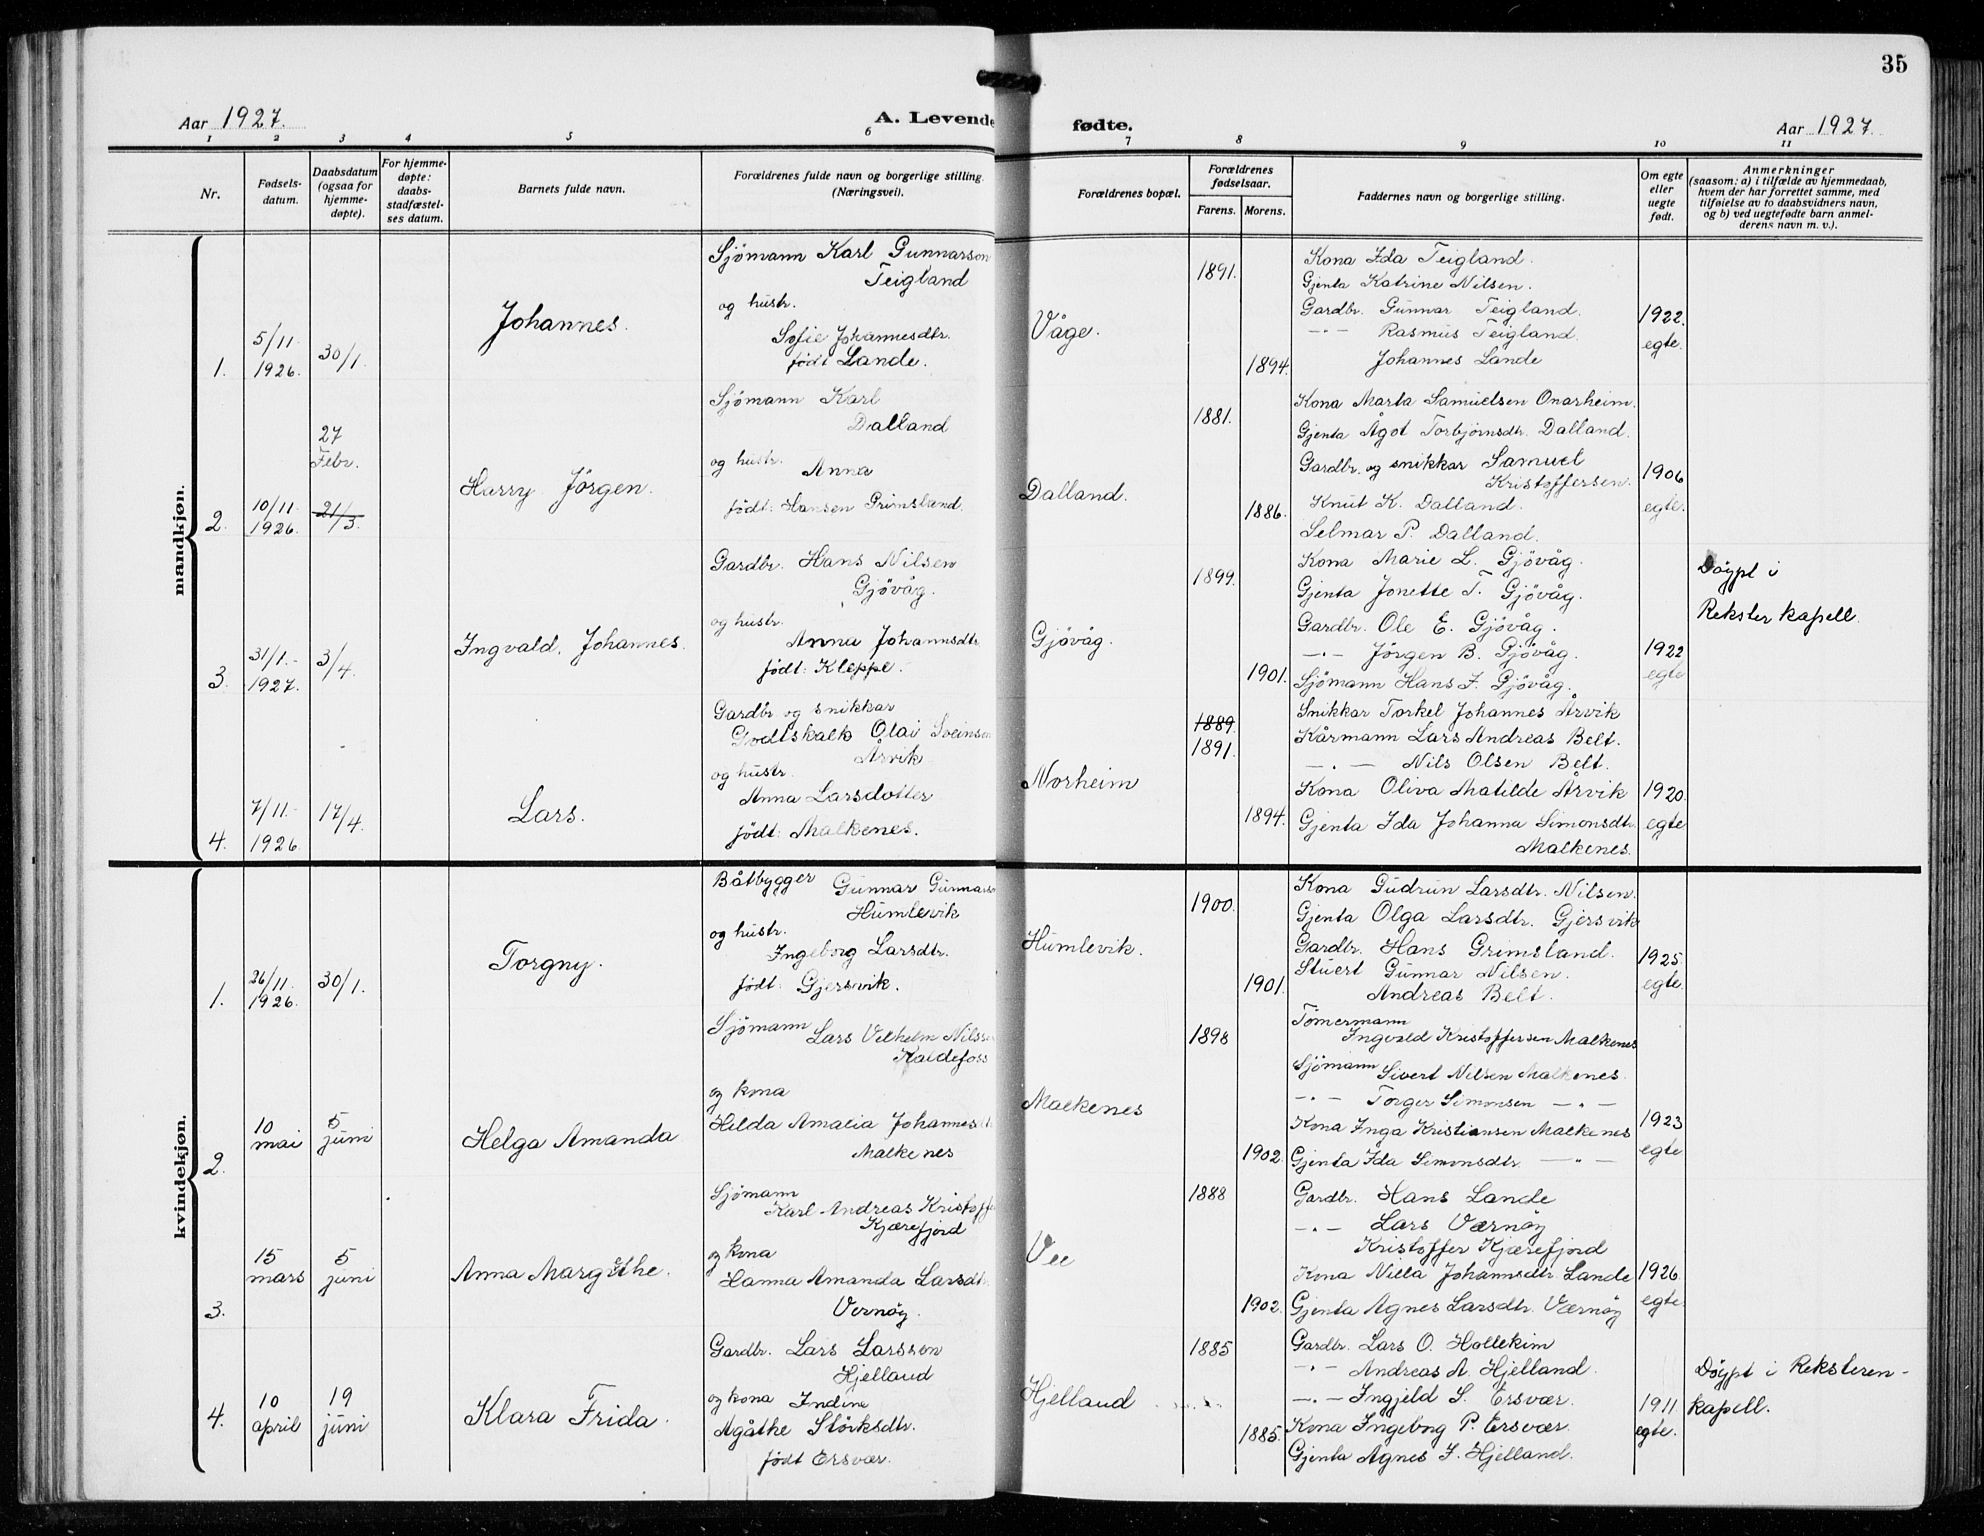 35
Aar 1927.
A. Levende
fødte.
Aar 1927.
1 2 3 4 5 6 7 8 9 10 11
Nr.
Fødsels-
datum.
Daabsdatum
(ogsaa for
hjemme-
døpte).
For hjemme-
døpte:
daabs-
stadfæstel-
ses datum.
Barnets fulde navn.
Forældrenes fulde navn og borgerlige stilling.
(Næringsvei).
Forældrenes bopæl.
Forældrenes
fødselsaar.
Farens.
Morens.
Faddernes navn og borgerlige stilling.
Om egte
eller
uegte
født.
Anmerkninger
(saasom: a) i tilfælde av hjemmedaab,
hvem der har forrettet samme, med
tilføielse av to daabsvidners navn,
og b) ved uegtefødte barn anmel-
derens navn m. v.).
mandkjøn.
1.
5/11-
1926.
30/1.
Johannes.
Sjømann Karl Gunnarson
Teigland
og hustr.
Sofie Johannesdtr.
født Lande.
Våge.
1891.
1894.
Kona Ida Teigland.
Gjenta Katrine Nilsen.
Gardbr. Gunnar Teigland.
-"- Rasmus Teigland.
Johannes Lande
1922.
egte.
2.
10/11-
1926.
27
Febr.
21/3.
Harry Jörgen.
Sjömann Karl
Dalland
og hustr.
Anna
født: Hansen Grimsland.
Dalland.
1881.
1886.
Kona Marta Samuelsen Onarheim.
Gjenta Ågot Torbjørnsdtr. Dalland.
Gardbr. og snikkar Samuel
Kristoffersen.
Knut K. Dalland.
Selmar P. Dalland.
1906
egte.
3.
31/1.-
1927.
3/4.
Ingvald Johannes.
Gardbr. Hans Nilsen
Gjövåg.
og hustr.
Anna Johannsdtr
født: Kleppe.
Gjövåg.
1899.
1901.
Kona Marie L. Gjövåg.
Gjenta Jonette T. Gjövåg.
Gardbr. Ole E. Gjövåg.
-"- Jörgen B. Gjövåg.
Sjömann Hans J. Gjövåg.
1922
egte
Döypt i
Rekster kapell.
4.
7/11.-
1926
17/4.
Lars.
Gardbr og snikkar
Godtskalk Olai Sveinsen
Årvik
og hustr.
Anna Larsdotter
født: Malkenes.
Norheim
1889
1891.
1894.
Snikkar Torkel Johannes Årvik
Kårmann Lars Andreas Belt.
-"- Nils Olsen Belt.
Kona Oliva Matilde Årvik
Gjenta Ida Johanna Simonsdtr.
Malkenes.
1920.
egte
kvindekjøn.
1.
26/11.
1926.
30/1.
Torgny.
Båtbygger Gunnar Gunnarso
Humlevik
og hustr.
Ingeborg Larsdtr.
født: Gjersvik.
Humlevik.
1900.
1901.
Kona Gudrun Larsdtr. Nilsen.
Gjenta Olga Larsdtr. Gjersvik
Gardbr. Hans Grimsland.
Stuert Gunnar Nilsen.
Andreas Belt.
1925.
egte.
2.
10
mai
5
juni
Helga Amanda
Sjömann Lars Vilhelm Nilsse
Haldefoss
og kona
Hilda Amalia Johannes
Malkenes
Malkenes
1898
1902.
Tömermann
Ingvald Kristoffersen Malkenes
Sjömann Sivert Nilsen Malkenes.
-"- Torger Simonsen -"-
Kona Inga Kristiansen Malkenes
Gjenta Ida Simonsdtr. -"-
1923
egte
3.
15
mars
5
juni
Anna Margrthe.
Sjömann
Karl Andreas Kristoffe
Kjærefjord
og kona
Hanna Amanda Larsdt.
Vernöy.
Vee
1888
1902.
Gardbr. Hans Lande
-"- Lars Værnöy
Kristoffer Kjærefjord
Kona Nilla Johannsdtr. Lande
Gjenta Agnes Larsdtr. Værnöy
1926.
egte.
4.
10
april
19
juni
Klara Frida.
Gardbr. Lars Larssen
Hjelland
og kona Indine
Agåthe Störksdtr.
født Ersvær.
Hjelland
1885
1885.
Gardbr. Lars O. Hollekim
-"- Andreas A. Hjelland.
-"- Ingjeld S. Ersvær.
Kona Ingeborg P. Ersvær.
Gjenta Agnes J. Hjelland.
1911
egte.
Döypt i Reksteren-
kapell.